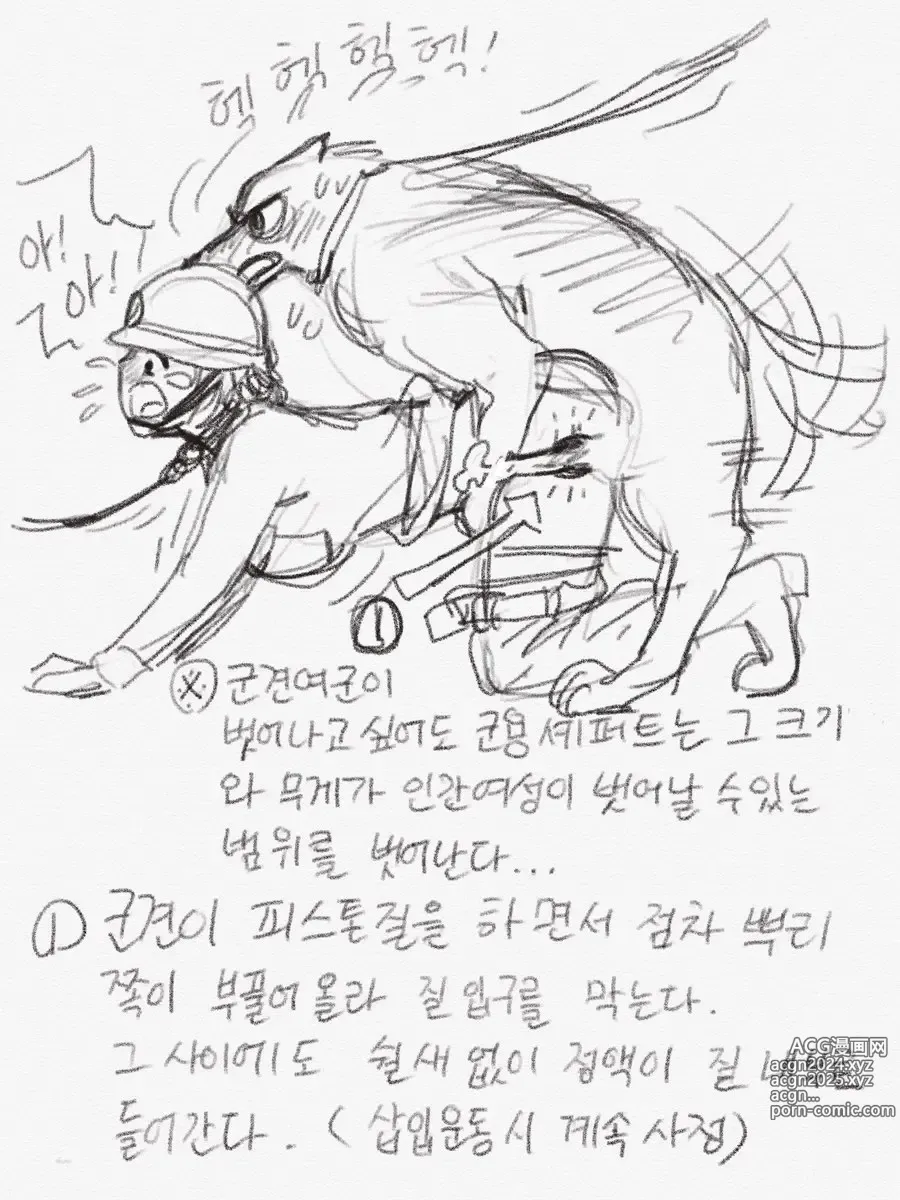 헥 헥 헥 헥!
아!
아!
①
※ 군견여군이
벗어나고 싶어도 군용 셰퍼트는 그 크기
와 무게가 인간여성이 벗어날 수있는
범위를 벗어난다...
① 군견이 피스톤질을 하면서 점차 뿌리
쪽이 부풀어 올라 질 입구를 막는다.
그 사이에도 쉴새 없이 정액이 질
들어간다. (삽입운동시 계속 사정)
ACG漫画网
acgn2024.xyz
acgn2025.xyz
acgn...
porn-comic.com